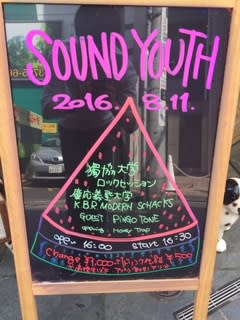 SOUND YOUTH
2016. 8.11.
獨協大学
ロックセッション
慶応義塾大学
K.B.R MODERN SCHACKS
GUEST : PINGO TONE
opening : Honey Trap
open 16:00 start 16:30
Charge ¥1,000 ¥500